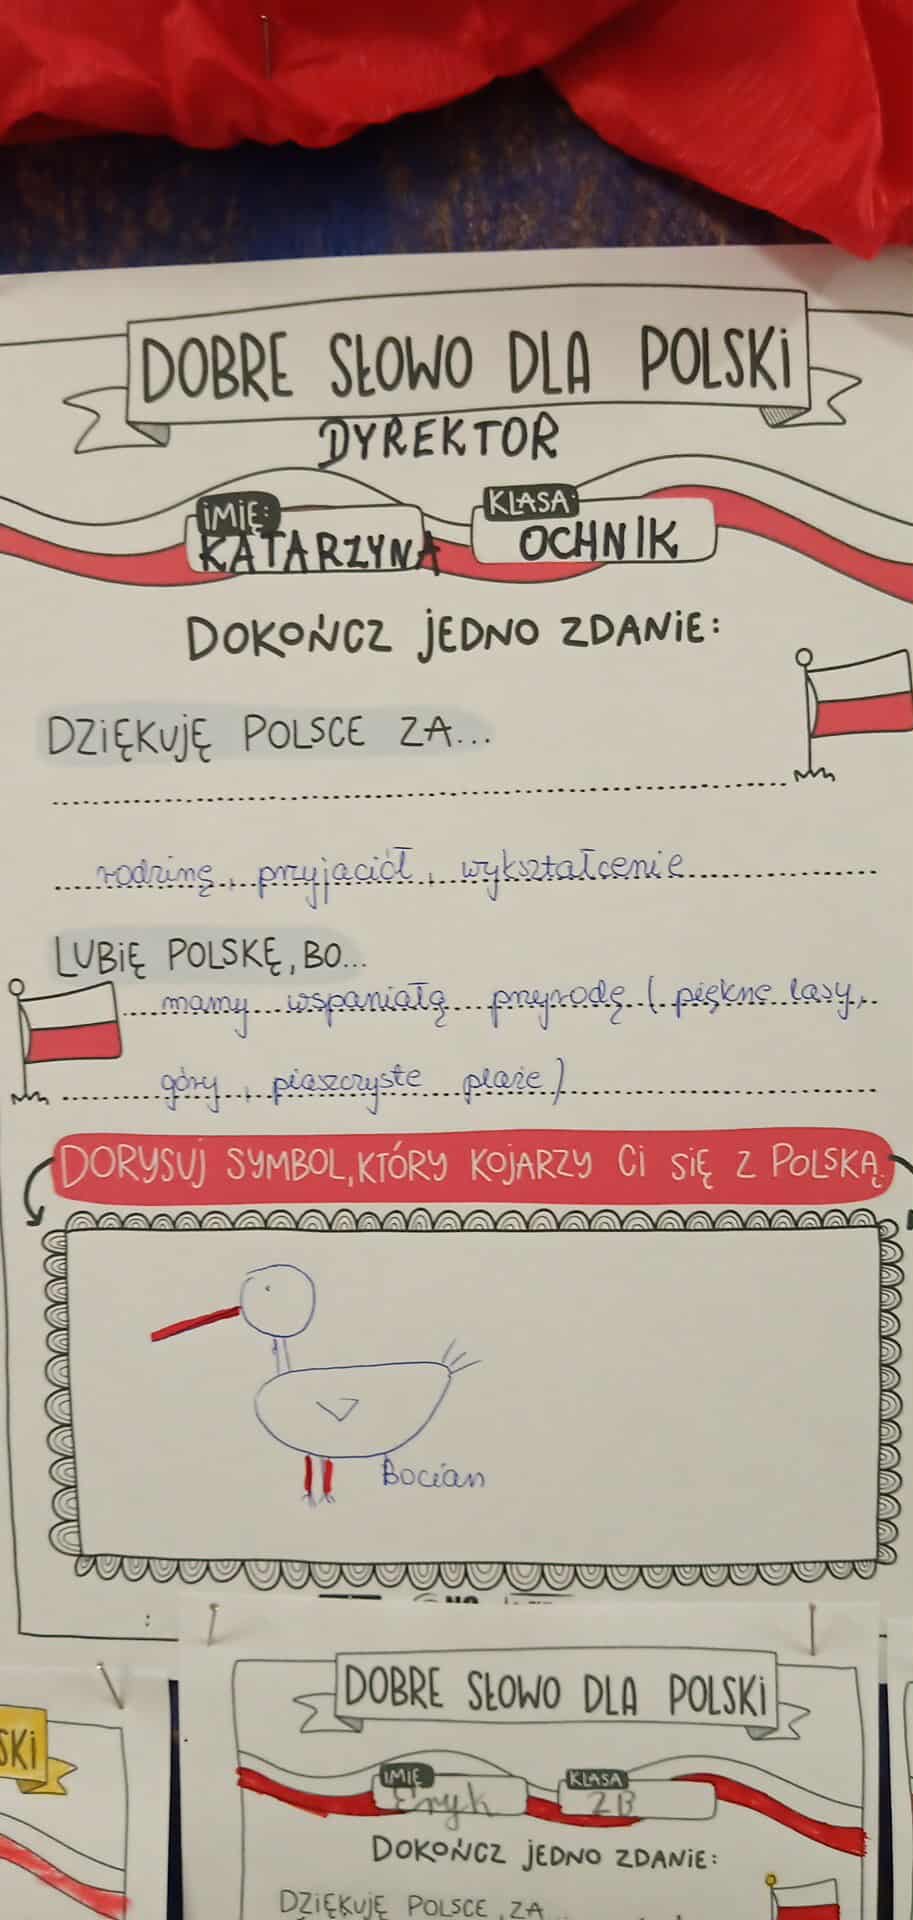 DOBRE SŁOWO DLA POLSKI
DYREKTOR
IMIĘ: KLASA:
KATARZYNA OCHNIK
DOKOŃCZ JEDNO ZDANIE:
DZIĘKUJĘ POLSCE ZA...
rodzinę, przyjaciół, wykształcenie
LUBIĘ POLSKĘ, BO...
mamy wspaniałą przyrodę (piękne lasy,
góry, piaszczyste plaże)
DORYSUJ SYMBOL, KTÓRY KOJARZY CI SIĘ Z POLSKĄ:
Bocian
DOBRE SŁOWO DLA POLSKI
SKI
IMIĘ KLASA
Eryk 2B
DOKOŃCZ JEDNO ZDANIE:
DZIĘKUJĘ POLSCE ZA